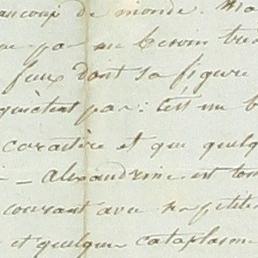 beaucoup de monde. Ma
par un besoin
feux dont sa figure
quiètent pas: c'est une
caractère et que quelq
- Alexandrine est tom
courant avec sa petite
et quelques cataplasme